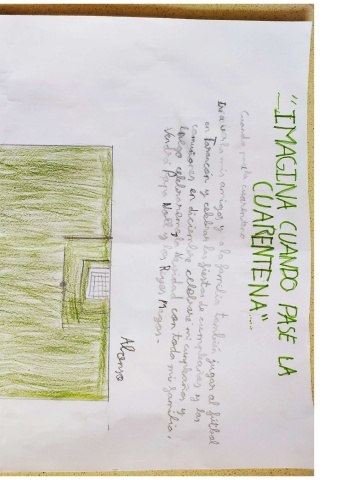 "IMAGINA CUANDO PASE LA
CUARENTENA"....
Cuando pase la cuarentena
Iré a ver a mis amigos y a la familia también jugar al fútbol
en Tarancón y celebrar las fiestas de cumpleaños y las
comuniones en diciembre celebrare mi cumpleaños y
luego celebraremos la Navidad con toda mi familia.
Vendrá Papa Noel y los Reyes Magos.
Alonso